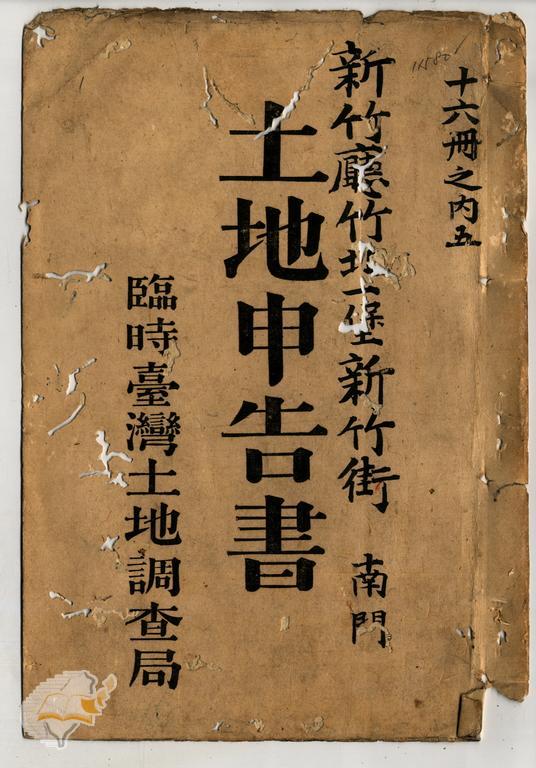 十六冊之內五
新竹廳竹北一堡新竹街 南門
土地申告書
臨時臺灣土地調查局